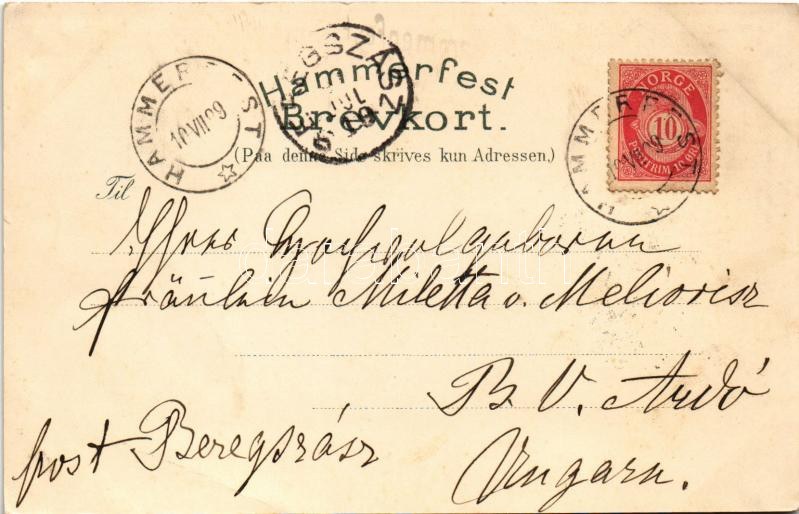 HAMMERFEST
10 VII 99
BEREGSZÁSZ
JUL
19
Hammerfest
Brevkort.
(Paa denne Side skrives kun Adressen.)
NORGE
10
POSTFRIM
HAMMERFEST
10 VII 99
Til
Ihrer Hochwolgeboren
Fräulein Miletta v. Meliorisz
B. V. Ardó
post Beregszász
Ungarn.